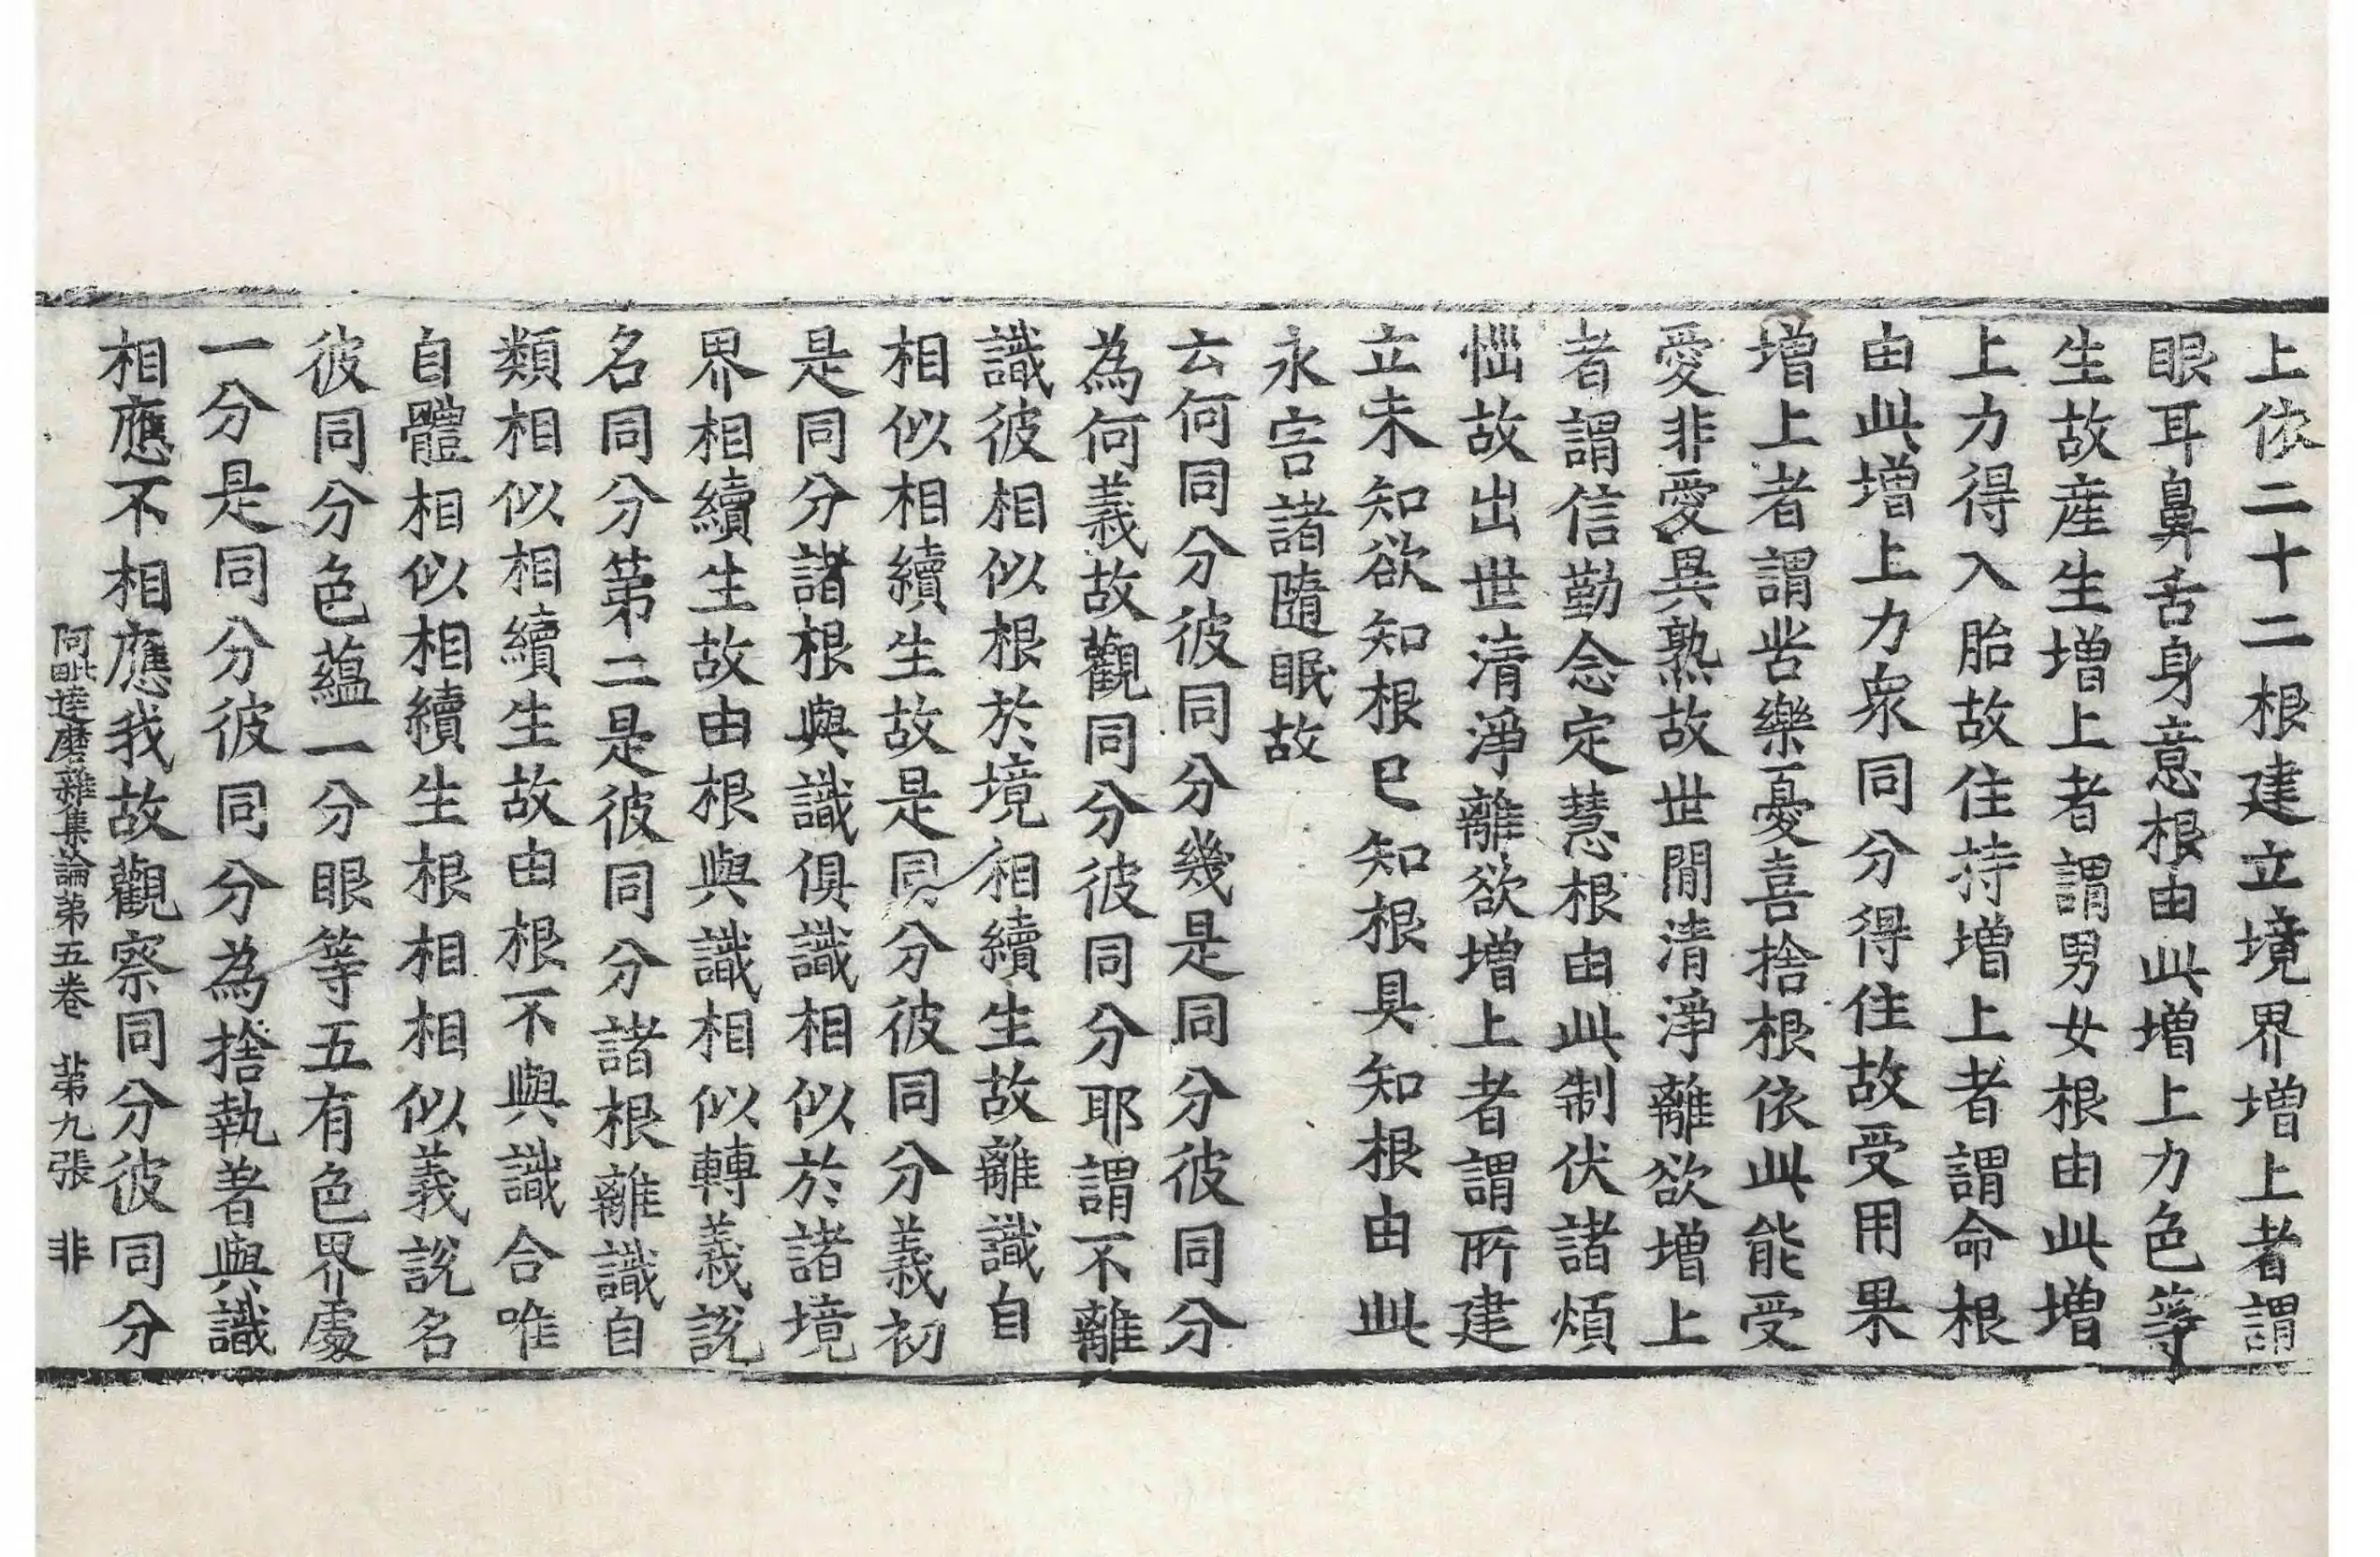 上依二十二根建立境界增上者謂
眼耳鼻舌身意根由此增上力色等
生故産生增上者謂男女根由此增
上力得入胎故住持增上者謂命根
由此增上力衆同分得住故受用果
增上者謂苦樂憂喜捨根依此能受
愛非愛異熟故世閒清淨離欲增上
者謂信勤念定慧根由此制伏諸煩
惱故出世清淨離欲增上者謂所建
立未知欲知根已知根具知根由此
永害諸隨眠故
云何同分彼同分幾是同分彼同分
為何義故觀同分彼同分耶謂不離
識彼相似根於境相續生故離識自
相似相續生故是同分彼同分義初
是同分諸根與識俱識相似於諸境
界相續生故由根與識相似轉義說
名同分第二是彼同分諸根離識自
類相似相續生故由根不與識合唯
自體相似相續生根相相似義說名
彼同分色蘊一分眼等五有色界處
一分是同分彼同分為捨執著與識
相應不相應我故觀察同分彼同分
阿毗達磨雜集論第五卷　第九張　非